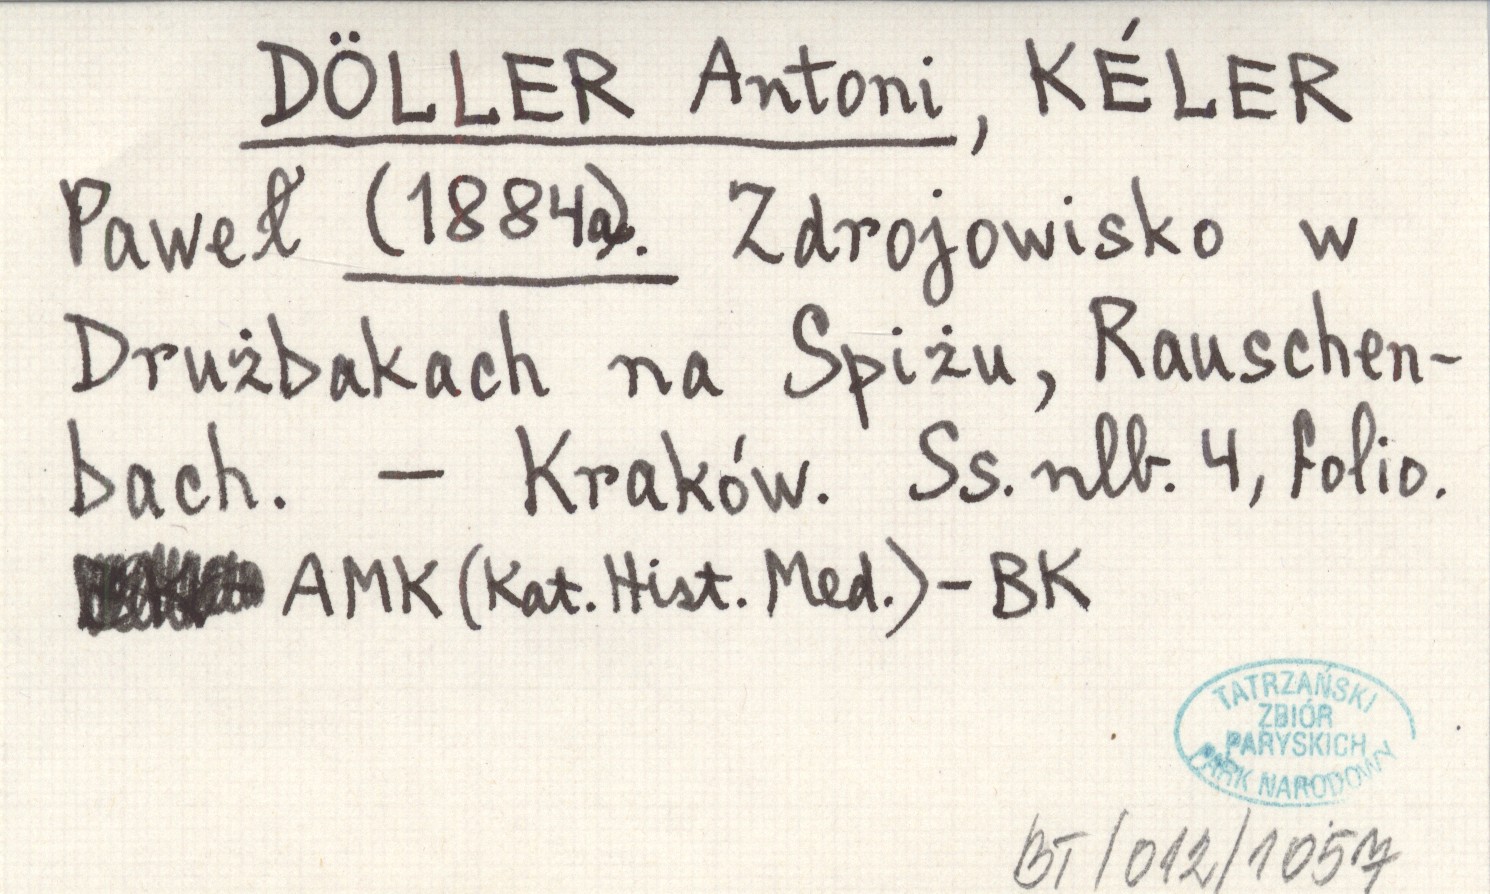 DÖLLER Antoni, KÉLER
Paweł (1884a). Zdrojowisko w
Drużbakach na Spiżu, Rauschen-
bach. — Kraków. Ss. nlb. 4, folio.
AMK (Kat. Hist. Med.) - BK
TATRZAŃSKI
ZBIÓR
PARYSKICH
PARK NARODOWY
BT/012/1057